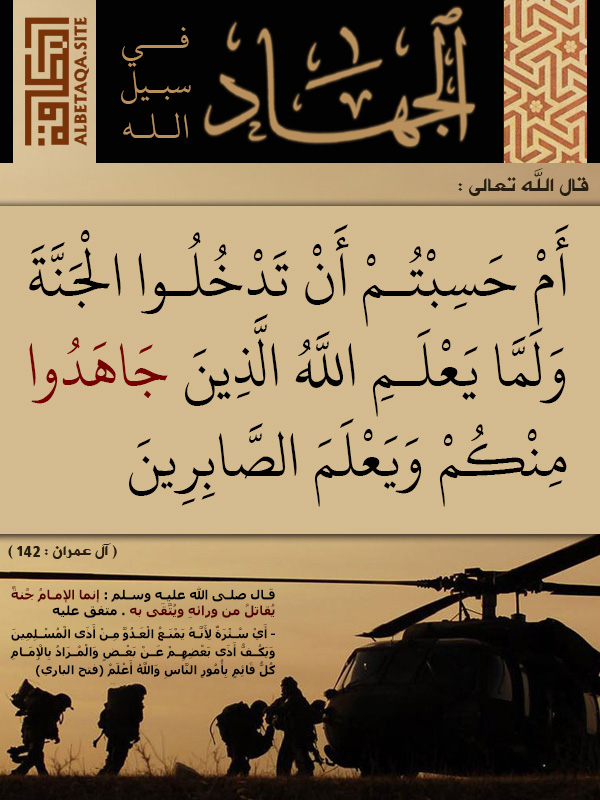 البطاقة
ALBETAQA.SITE
الجهاد
في
سبيل
الله
قال اللَّه تعالى :
أَمْ حَسِبْتُـمْ أَنْ تَدْخُلُـوا الْجَنَّةَ
وَلَمَّا يَعْلَـمِ اللَّهُ الَّذِينَ جَاهَدُوا
مِنْكُمْ وَيَعْلَمَ الصَّابِرِينَ
( آل عمران : 142 )
قـال صلـى الله عليـه وسـلم : إنما الإمامُ جُنةٌ
يُقاتلُ من ورائهِ ويُتَّقَى به . متفق عليه
- أَيْ سُـتْرَةٌ لِأَنَّـهُ يَمْنَـعُ الْعَدُوَّ مِـنْ أَذَى الْمُسْـلِمِينَ
وَيَكُـفُّ أَذَى بَعْضِهِـمْ عَـنْ بَعْـضٍ وَالْمُـرَادُ بِالْإِمَامِ
كُلُّ قَائِمٍ بِأُمُورِ النَّاسِ وَاللَّهُ أَعْلَمُ (فتح الباري)